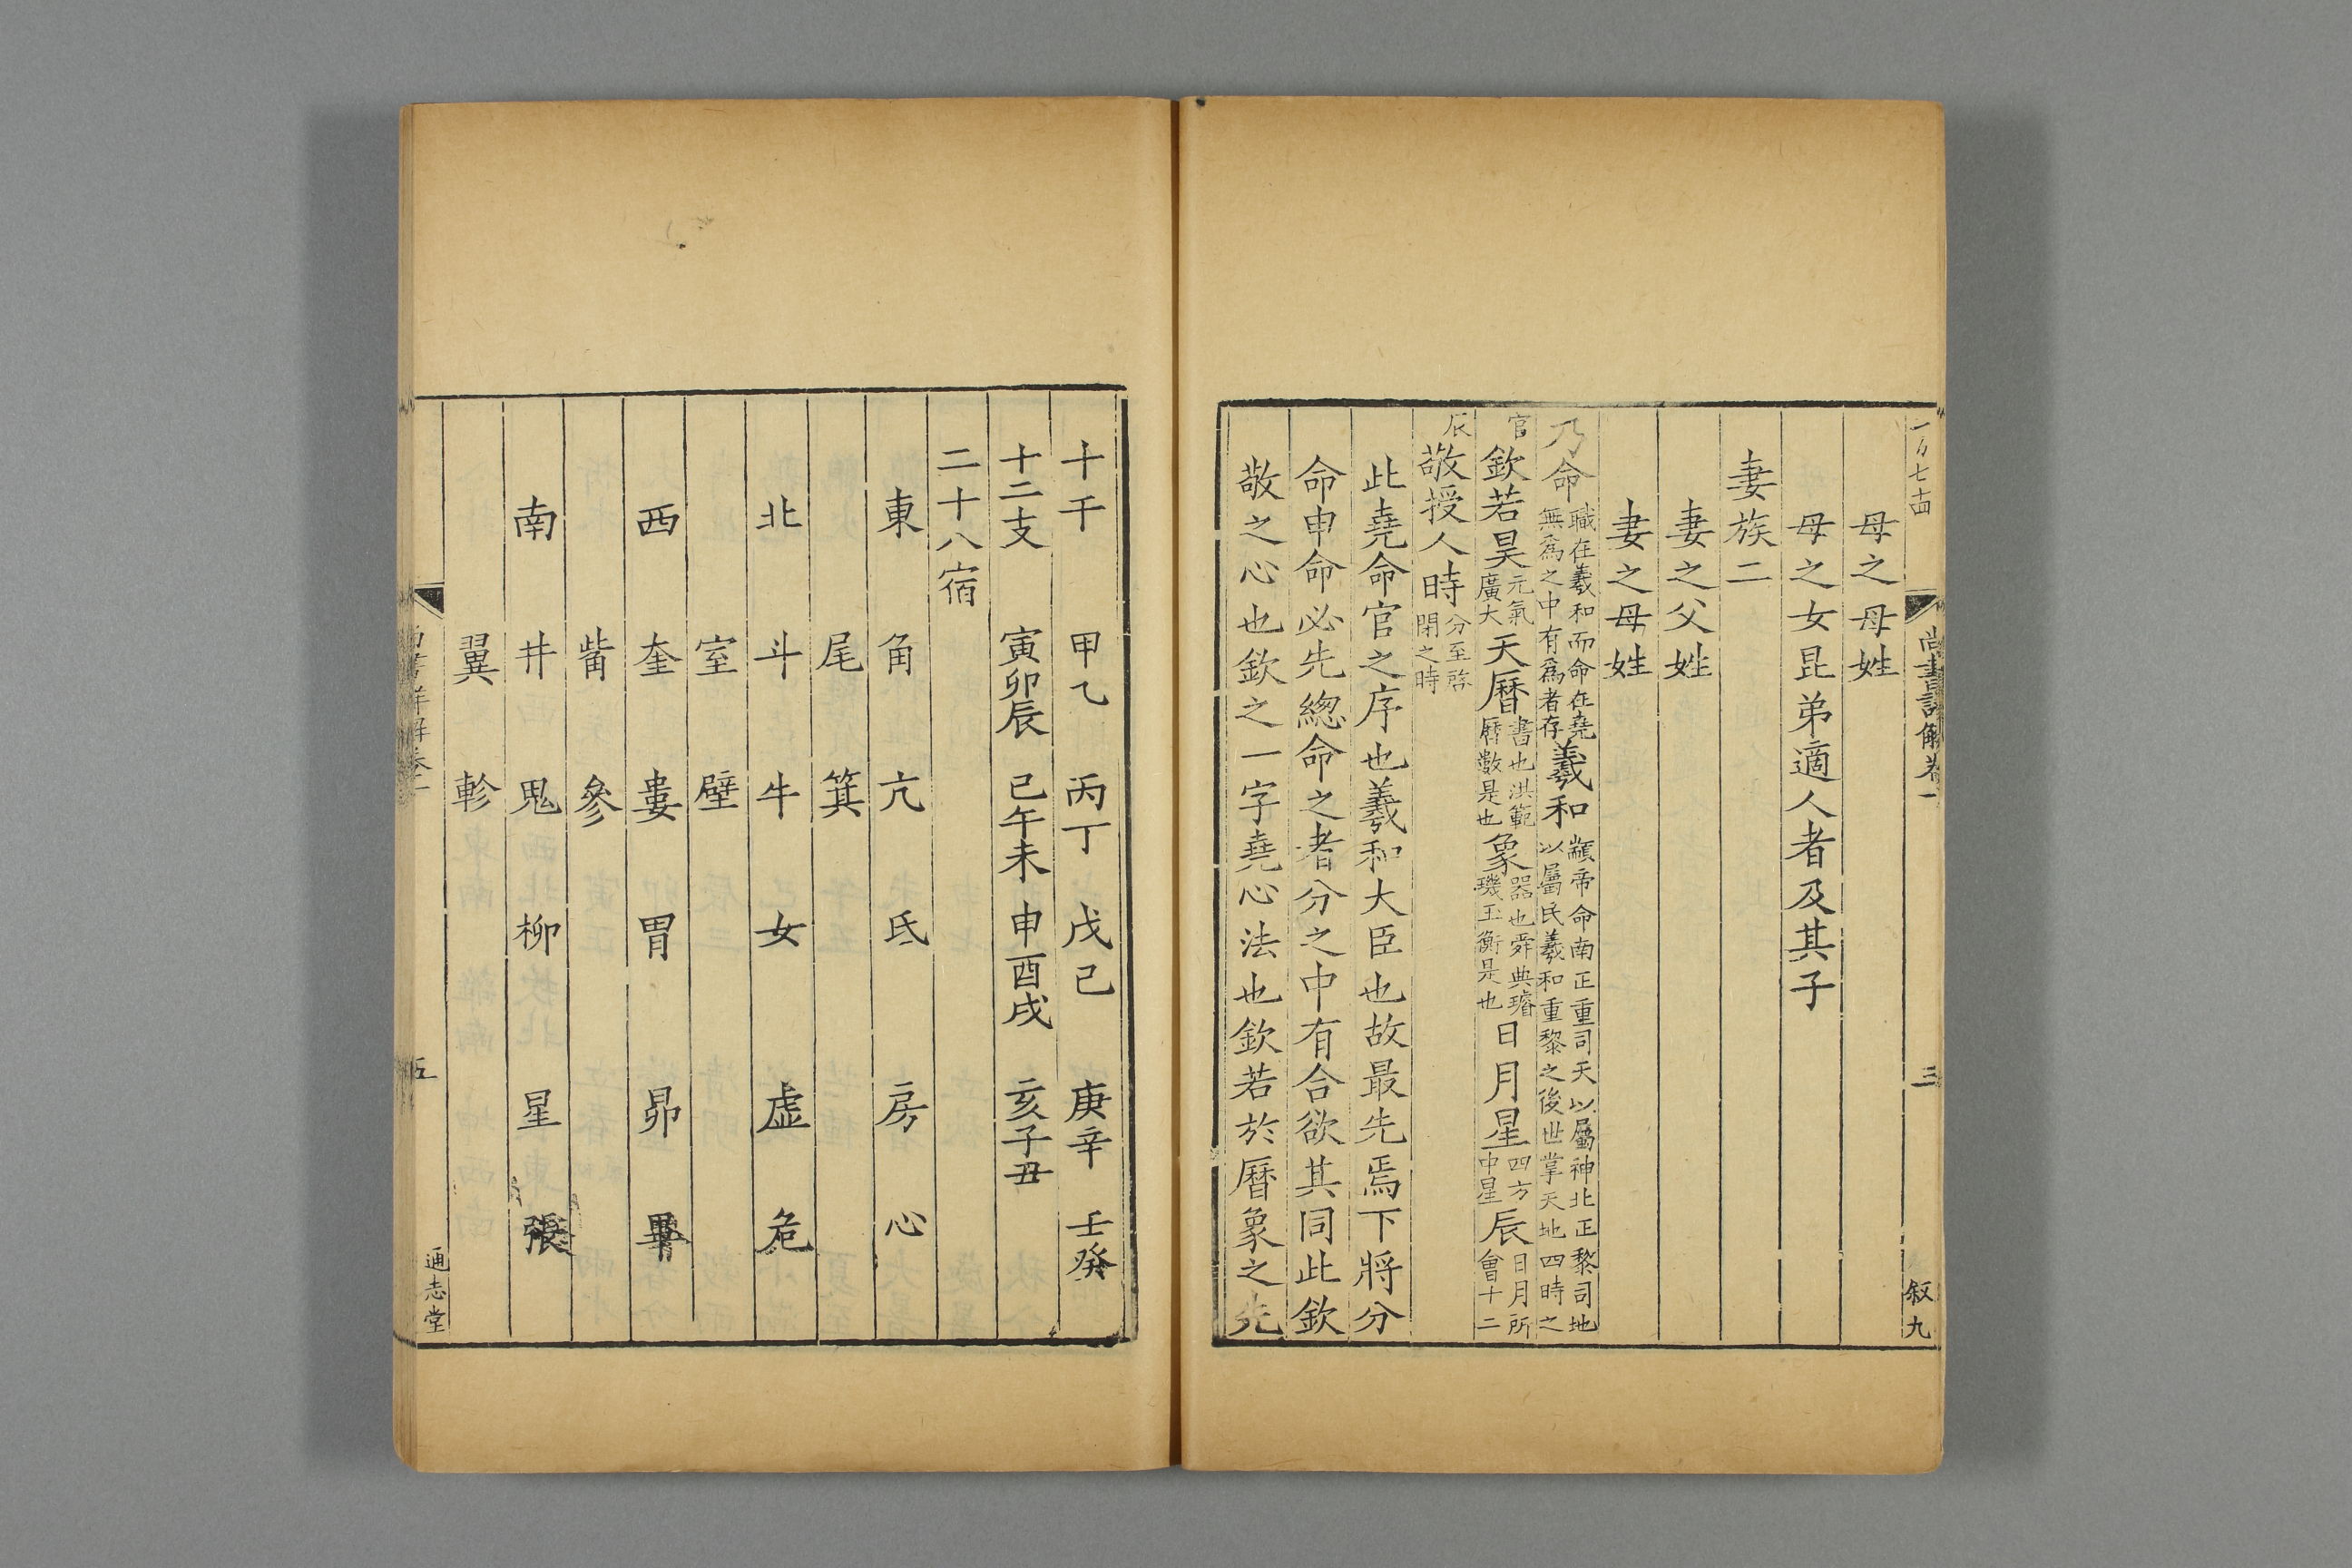 尚書詳解卷一
三
叙九
母之母姓
母之女昆弟適人者及其子
妻族二
妻之父姓
妻之母姓
乃命職在羲和而命在堯無爲之中有爲者存羲和顓帝命南正重司天以屬神北正黎司地以屬民羲和重黎之後世掌天地四時之
官欽若昊元氣廣大天曆書也洪範曆數是也象器也舜典璿璣玉衡是也日月星四方中星辰日月所會十二
辰敬授人時分至啓閉之時
此堯命官之序也羲和大臣也故最先焉下將分
命申命必先緫命之者分之中有合欲其同此欽
敬之心也欽之一字堯心法也欽若於曆象之先
十干 甲乙 丙丁 戊己 庚辛 壬癸
十二支 寅卯辰 巳午未 申酉戌 亥子丑
二十八宿
東 角 亢 氐 房 心
尾 箕
北 斗 牛 女 虚 危
室 壁
西 奎 婁 胃 昴 畢
觜 參
南 井 鬼 柳 星 張
翼 軫
五
通志堂